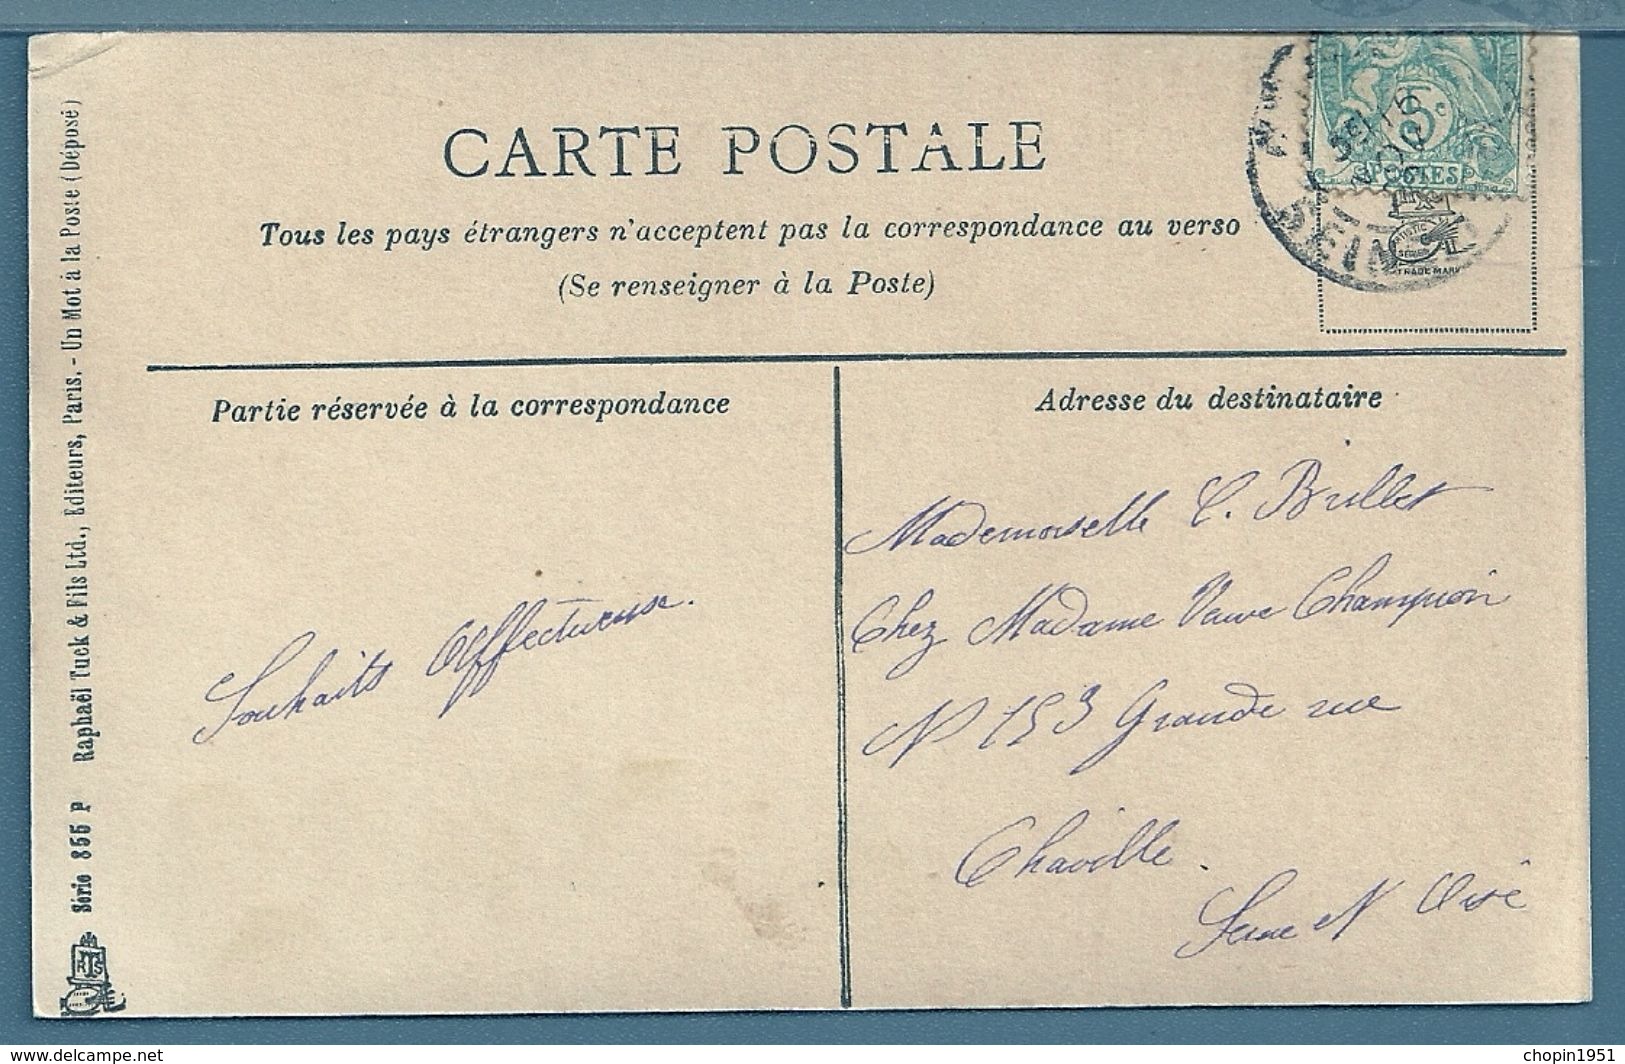 CARTE POSTALE
Tous les pays étrangers n'acceptent pas la correspondance au verso
(Se renseigner à la Poste)
5c
POSTES
SEINE
TRADE MARK
Partie réservée à la correspondance
Adresse du destinataire
Souhaits Affectueuse.
Mademoiselle C. Brillet
Chez Madame Veuve Champion
N 153 Grande rue
Chaville.
Seine et Oise
Série 855 P Raphaël Tuck & Fils Ltd., Editeurs, Paris. - Un Mot à la Poste (Déposé)
RTS
delcampe.net
chopin1951